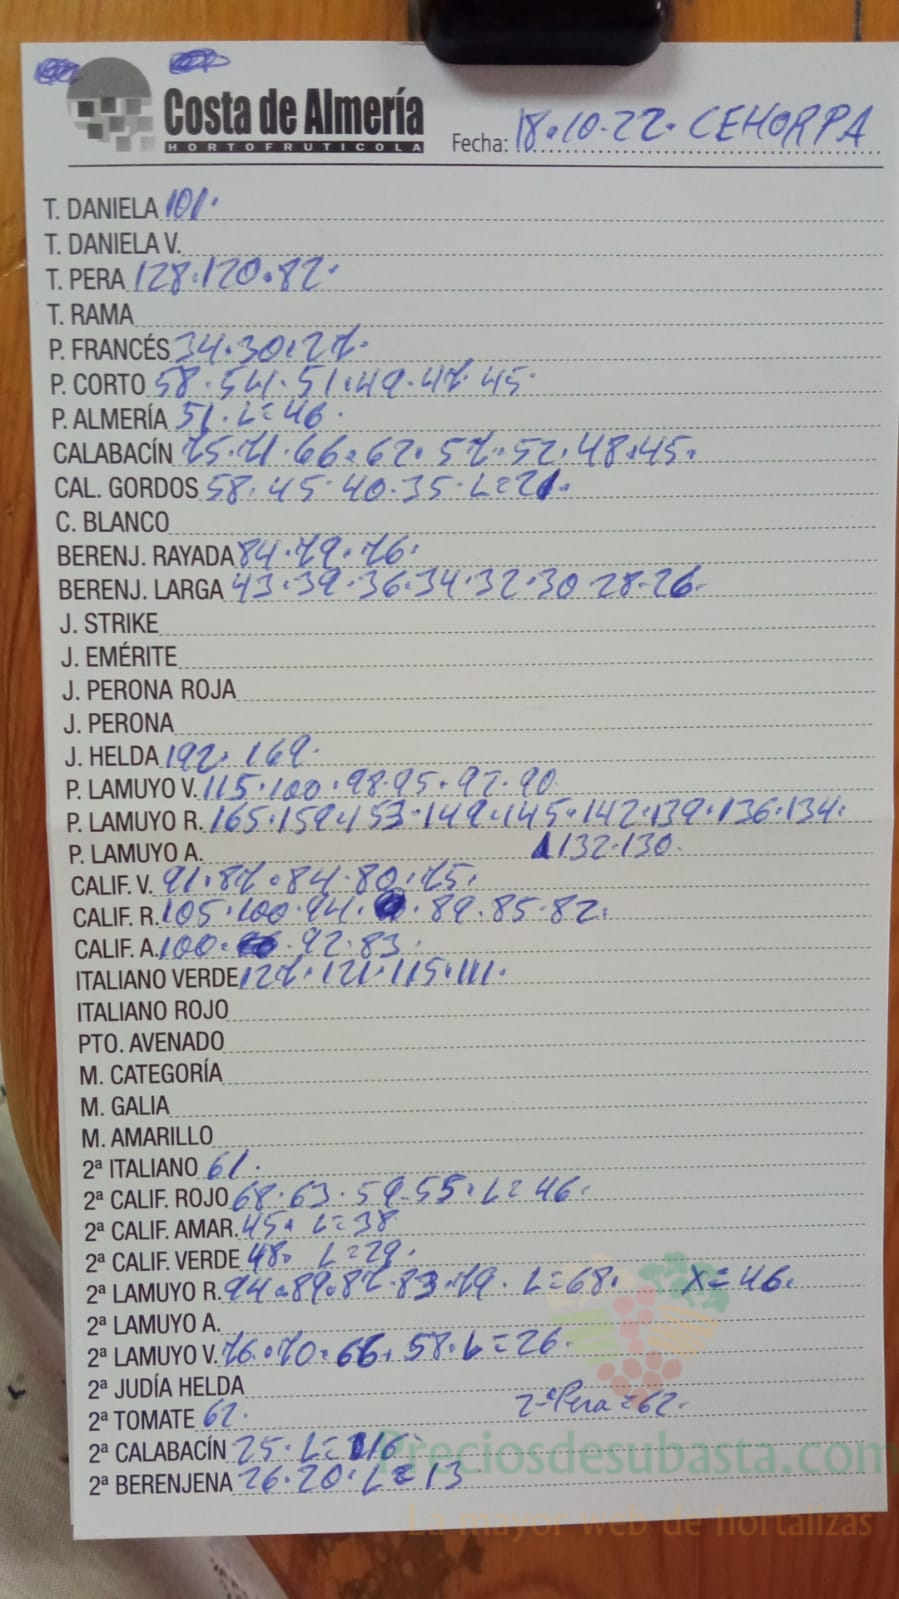 Costa de Almería
HORTOFRUTICOLA
Fecha: 18.10.22. CEHORPA
T. DANIELA 101.
T. DANIELA V.
T. PERA 128.120.82.
T. RAMA
P. FRANCÉS 34.30.27.
P. CORTO 58.54.51.49.47.45.
P. ALMERÍA 51. L=46.
CALABACÍN 75.71.66.62.57.52.48.45.
CAL. GORDOS 58.45.40.35. L=21.
C. BLANCO
BERENJ. RAYADA 84.79.76.
BERENJ. LARGA 43.39.36.34.32.30.28.26.
J. STRIKE
J. EMÉRITE
J. PERONA ROJA
J. PERONA
J. HELDA 192. 169.
P. LAMUYO V. 115.100.98.95.92.90
P. LAMUYO R. 165.159.153.149.145.142.139.136.134.
P. LAMUYO A. 132.130.
CALIF. V. 91.87.84.80.75.
CALIF. R. 105.100.94. . 89.85.82.
CALIF. A. 100. . 92.83.
ITALIANO VERDE 127.121.115.111.
ITALIANO ROJO
PTO. AVENADO
M. CATEGORÍA
M. GALIA
M. AMARILLO
2ª ITALIANO 61.
2ª CALIF. ROJO 68.63.59.55. L=46.
2ª CALIF. AMAR. 45. L=38
2ª CALIF. VERDE 48. L=29.
2ª LAMUYO R. 94.89.87.83.79. L=68. X=46.
2ª LAMUYO A.
2ª LAMUYO V. 76.70.66.58. L=26.
2ª JUDÍA HELDA
2ª Pera=62.
2ª TOMATE 62.
2ª CALABACÍN 25. L=16
2ª BERENJENA 26.20. L=13
Preciosdesubasta.com
La mayor web de hortalizas